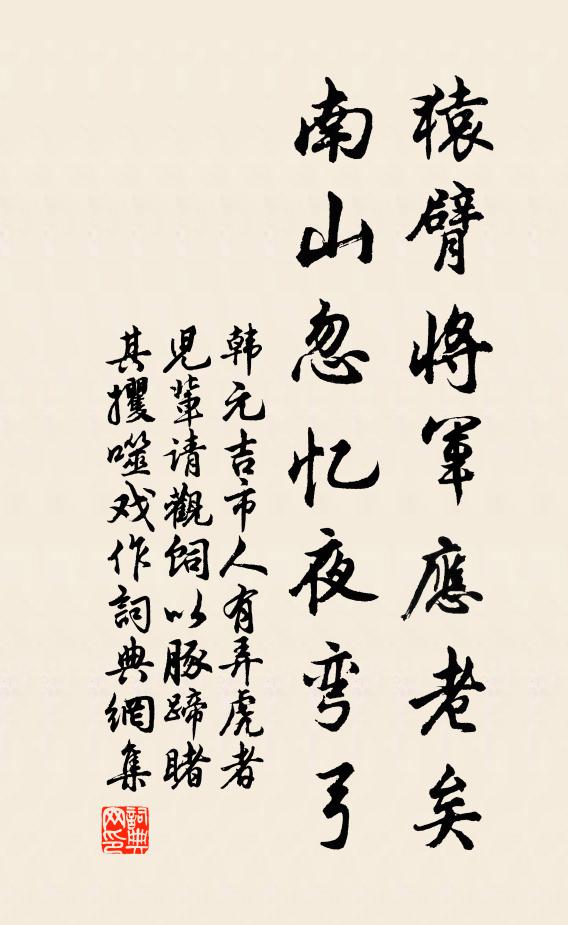 猿臂将軍應老矣
南山忽忆夜弯弓
韩元吉市人有弄虎者
児輩请觀饲以豚蹄睹
其攫噬戏作詞典網集
詞典
网印